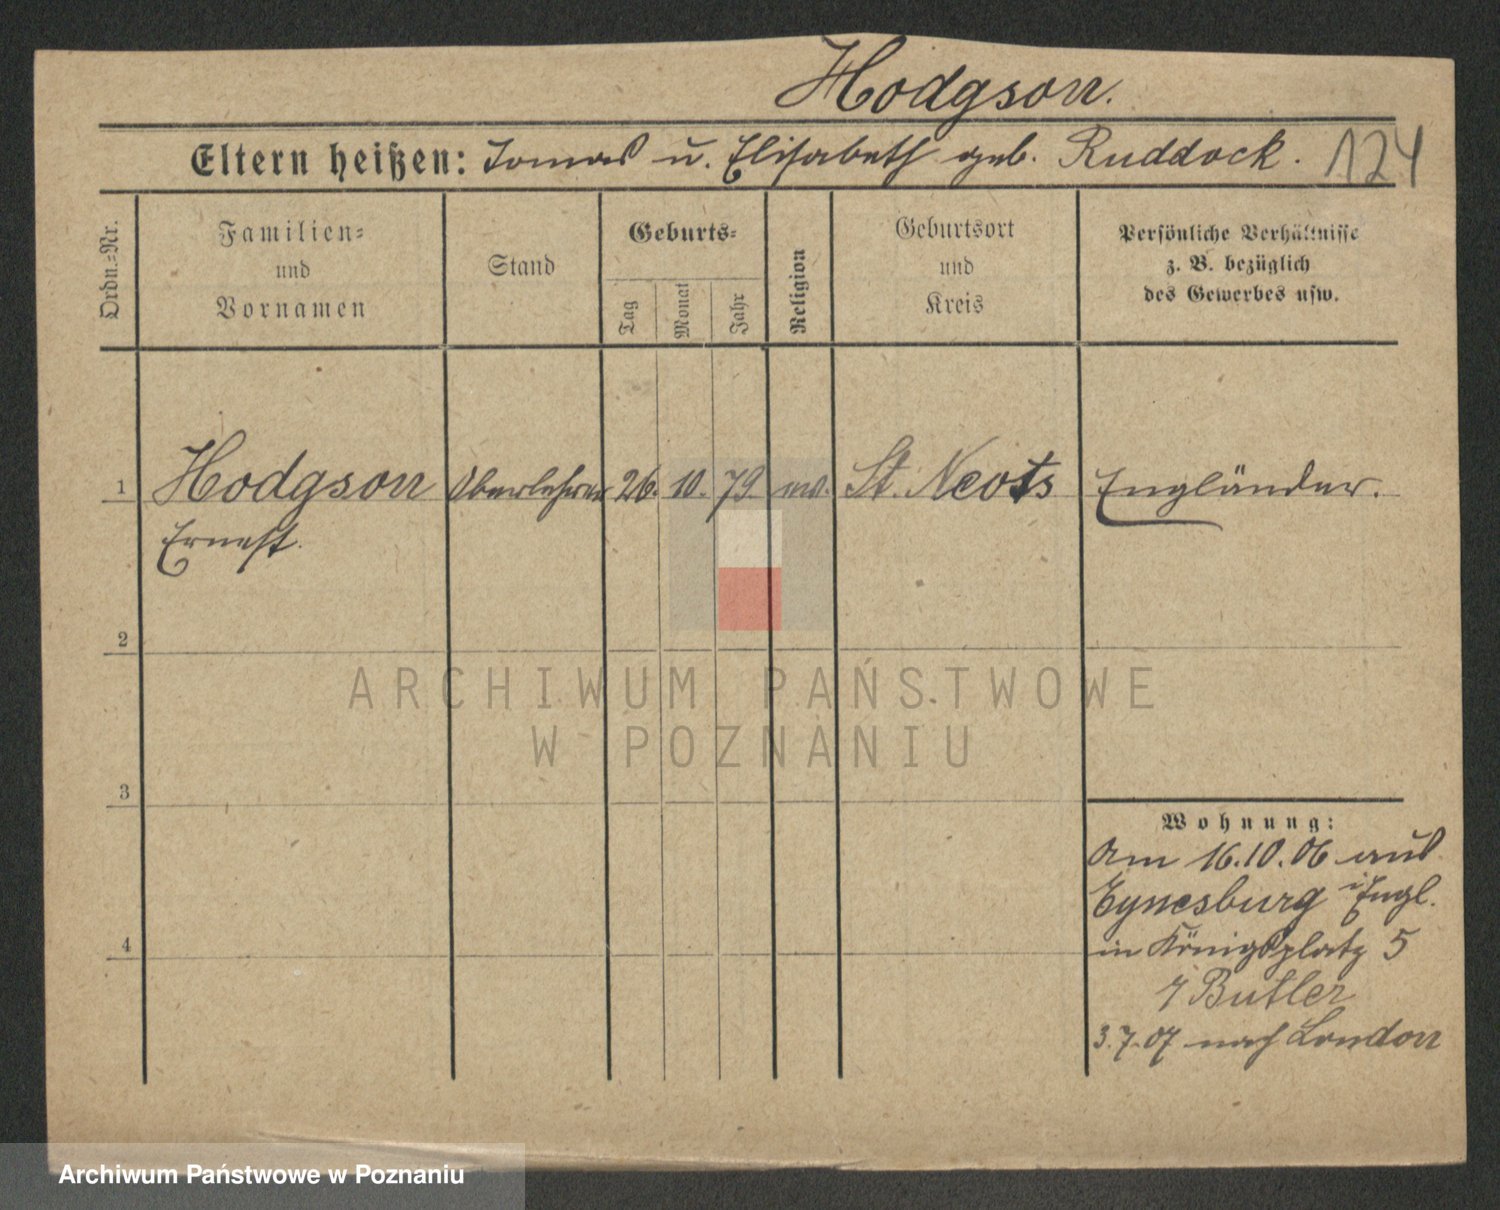 Hodgson.
Eltern heißen: Tomas u. Elisabeth geb. Ruddock. 124
Ordn.-Nr.
Familien-
und
Vornamen
Stand
Geburts-
Tag
Monat
Jahr
Religion
Geburtsort
und
Kreis
Persönliche Verhältnisse
z. B. bezüglich
des Gewerbes usw.
1 Hodgson Oberlehrer 26. 10. 79. St. Neots Engländer.
Ernest.
2
3
4
Wohnung:
Am 16.10.06 aus
Eynesburg i Engl.
in Königsplatz 5
Butler
3.7.07 nach London
ARCHIWUM PAŃSTWOWE
W POZNANIU
Archiwum Państwowe w Poznaniu